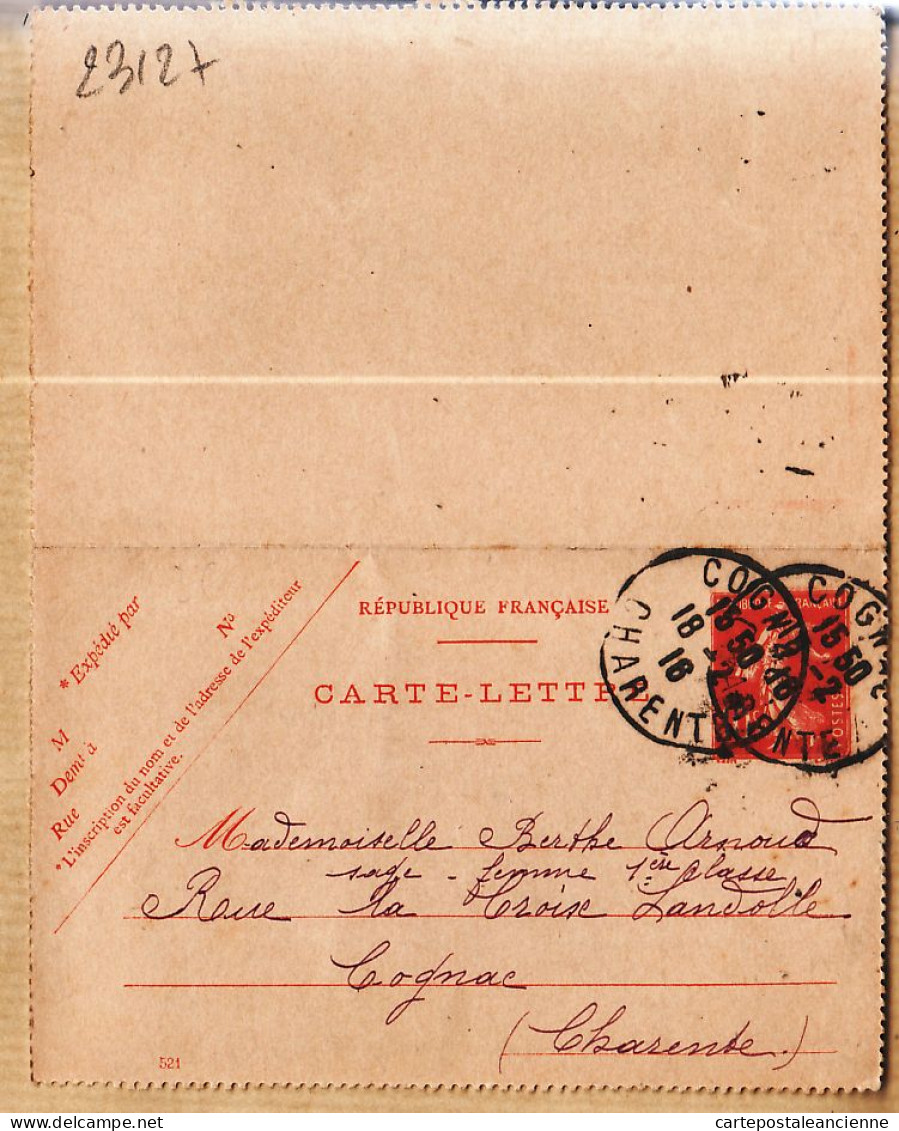 23127
* Expédié par
M
N°
Demt à
Rue
*L'inscription du nom et de l'adresse de l'expéditeur
est facultative.
RÉPUBLIQUE FRANÇAISE
CARTE-LETTRE
COGNAC
15 50
18 -2
16
CHARENTE
COGNAC
15 50
-2
POSTES
Mademoiselle Berthe Arnoud
sage - femme 1ère classe
Rue la Croix Landolle
Cognac
(Charente.)
521
Delcampe.net
cartepostaleancienne